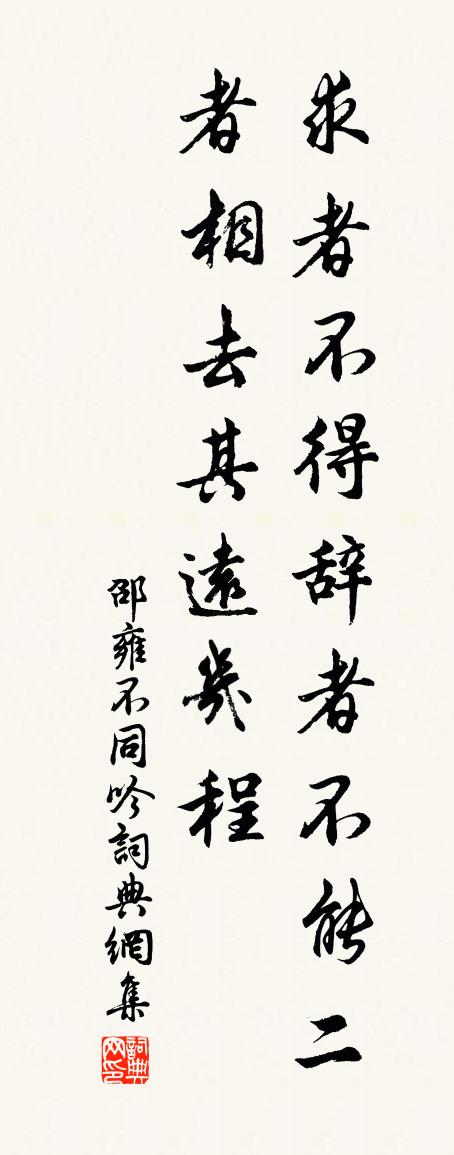 求者不得辞者不能二
者相去其遠幾程
邵雍不同吟詞典網集
詞典
网印